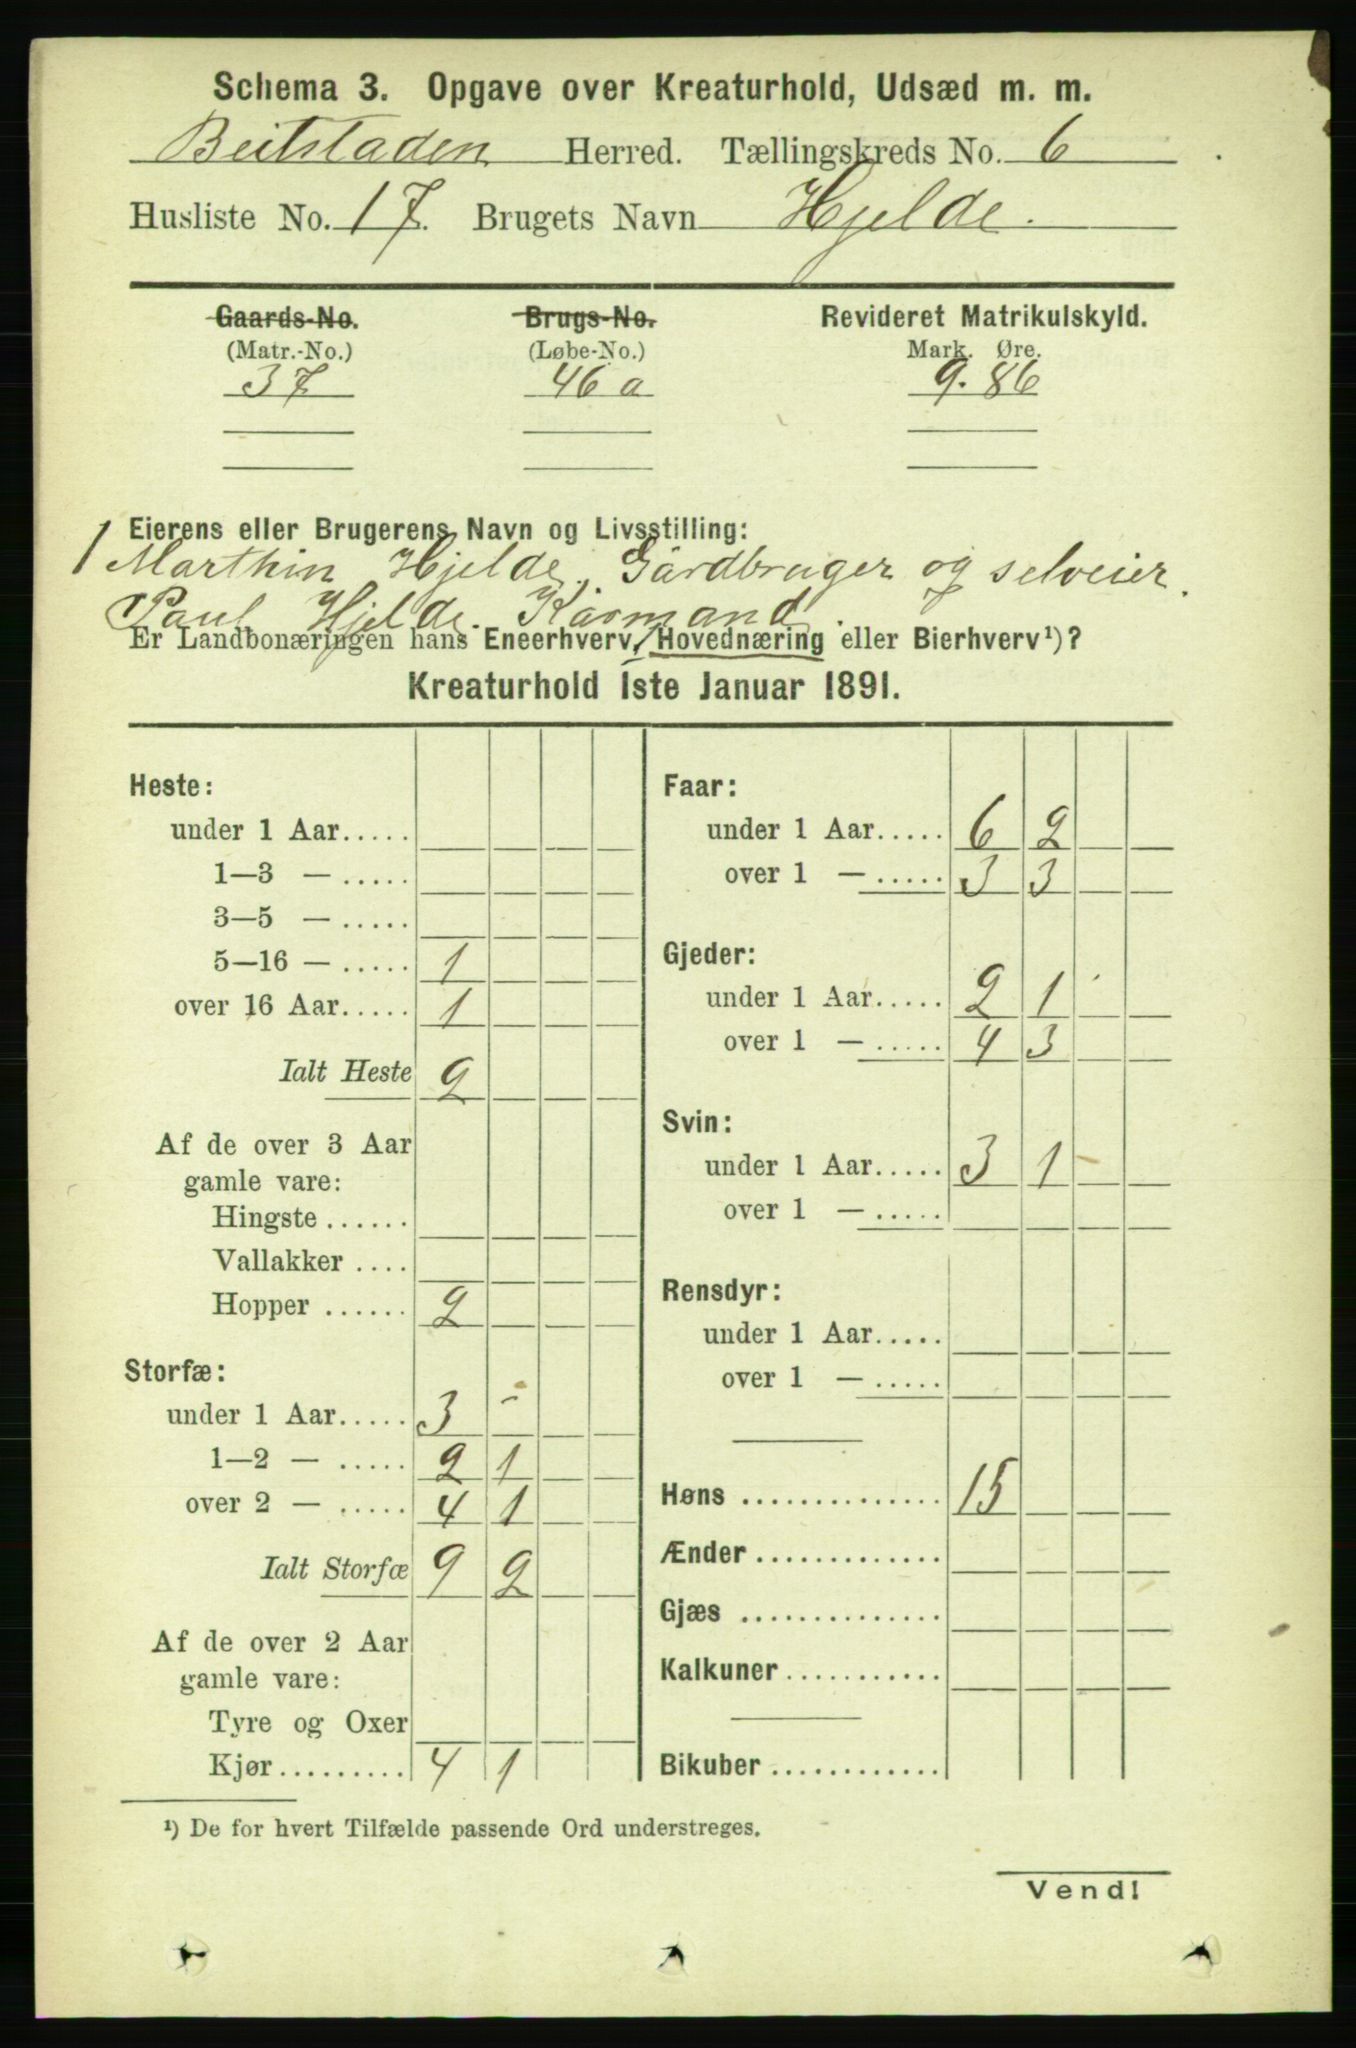 Schema 3. Opgave over Kreaturhold, Udsæd m. m.
Beitstaden Herred. Tællingskreds No. 6
Husliste No. 17. Brugets Navn Hjelde.
Gaards-No. Brugs-No. Revideret Matrikulskyld.
(Matr.-No.) (Løbe-No.) Mark. Øre.
37 46 a 9. 86
Eierens eller Brugerens Navn og Livsstilling:
1 Marthin Hjelde, Gårdbruger og selveier.
Paul Hjelde. Kårmand.
Er Landbonæringen hans Eneerhverv, Hovednæring eller Bierhverv¹)?
Kreaturhold 1ste Januar 1891.
Heste:
under 1 Aar.....
1—3 — .....
3—5 — .....
5—16 — ..... 1
over 16 Aar..... 1
Ialt Heste 2
Af de over 3 Aar
gamle vare:
Hingste ......
Vallakker ....
Hopper ...... 2
Storfæ:
under 1 Aar..... 3 -
1—2 — ..... 2 1
over 2 — ..... 4 1
Ialt Storfæ 9 2
Af de over 2 Aar
gamle vare:
Tyre og Oxer
Kjør......... 4 1
Faar:
under 1 Aar..... 6 2
over 1 — ..... 3 3
Gjeder:
under 1 Aar..... 2 1
over 1 — ..... 4 3
Svin:
under 1 Aar..... 3 1
over 1 — .....
Rensdyr:
under 1 Aar.....
over 1 — .....
Høns .............. 15
Ænder .............
Gjæs ..............
Kalkuner...........
Bikuber ............
¹) De for hvert Tilfælde passende Ord understreges.
Vend!